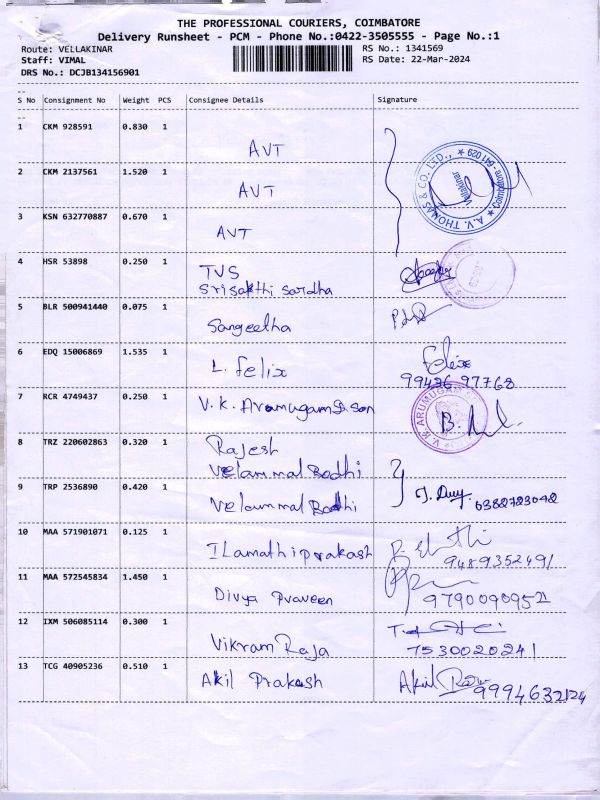 THE PROFESSIONAL COURIERS, COIMBATORE
Delivery Runsheet - PCM - Phone No.:0422-3505555 - Page No.:1
Route: VELLAKINAR RS No.: 1341569
Staff: VIMAL RS Date: 22-Mar-2024
DRS No.: DCJB134156901
S No Consignment No Weight PCS Consignee Details Signature
1 CKM 928591 0.830 1 AVT
2 CKM 2137561 1.520 1 AVT
A.V. THOMAS & CO. LTD., * Coimbatore - 641 029 *
Vellakinar
3 KSN 632770887 0.670 1 AVT
4 HSR 53898 0.250 1 TVS
Srisakthi Saradha
5 BLR 500941440 0.075 1 Sangeetha
6 EDQ 15006869 1.535 1 L. Felix Felix
99436 97768
7 RCR 4749437 0.250 1 V.K. Arumugam & son
V. K. ARUMUGAM
8 TRZ 220602863 0.320 1 Rajesh
Velammal Bodhi
9 TRP 2536890 0.420 1 Velammal Bodhi 6382723042
10 MAA 571901071 0.125 1 Ilamathiprakash
9489352491
11 MAA 572545834 1.450 1 Divya Praveen 9790090952
12 IXM 506085114 0.300 1 Vikram Raja
7530020241
13 TCG 40905236 0.510 1 Akil Prakash Akil
9994632124